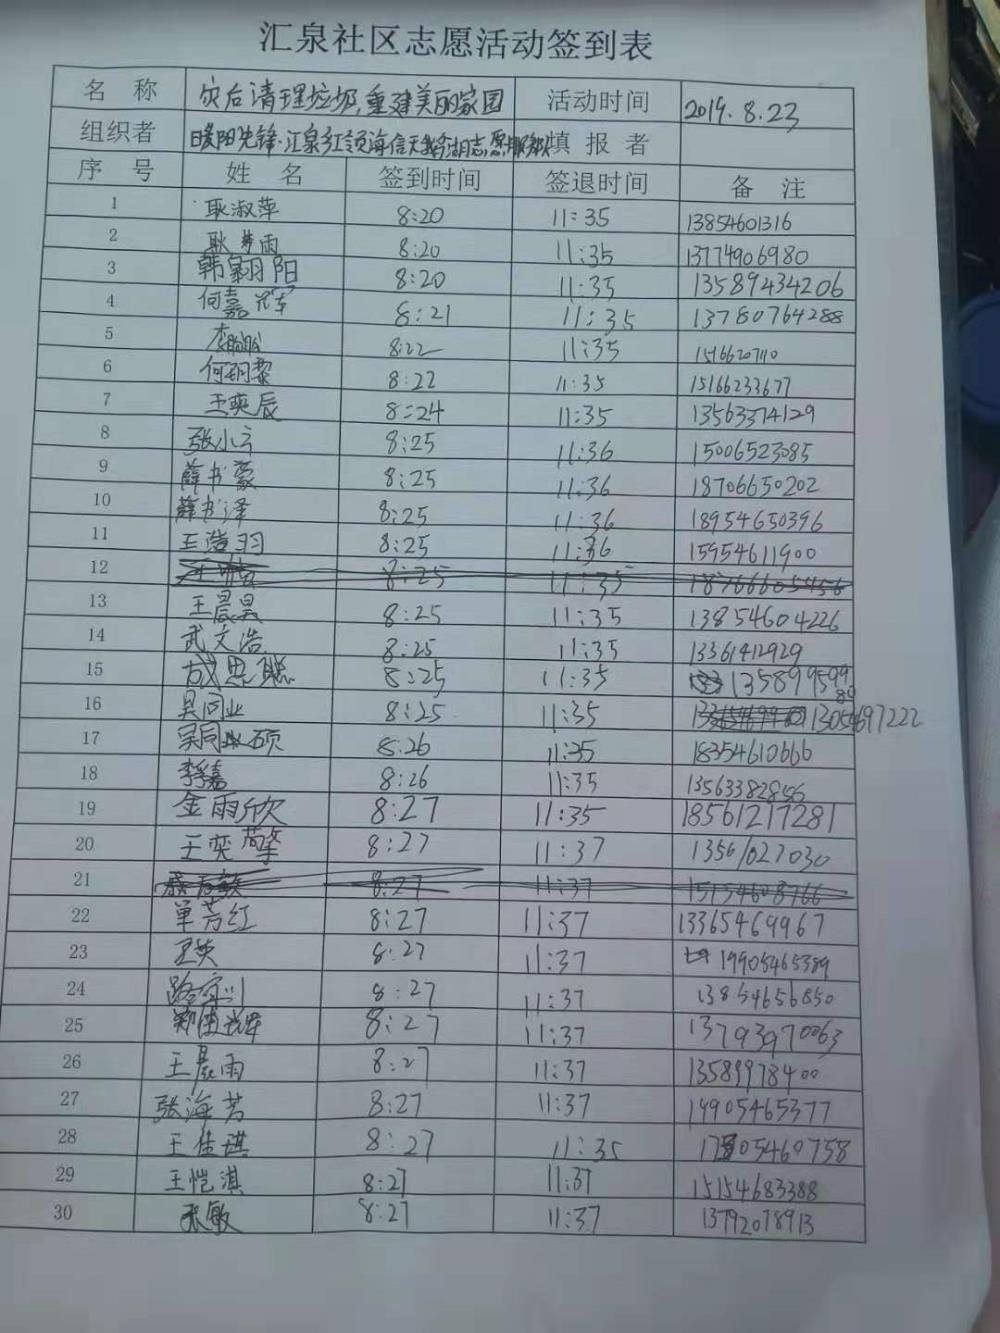 汇泉社区志愿活动签到表
名 称 灾后清理垃圾,重建美丽家园 活动时间 2019.8.23
组织者 暖阳先锋·汇泉红领海信天鹅湖志愿服务队 填 报 者
序 号 姓 名 签到时间 签退时间 备 注
1 耿淑萍 8:20 11:35 13854601316
2 耿梦雨 8:20 11:35 13774906980
3 韩翱阳 8:20 11:35 13589434206
4 何嘉 8:21 11:35 13780764288
5 李盼盼 8:22 11:35 15166207110
6 何玥黎 8:22 11:35 15166233677
7 王奕辰 8:24 11:35 13563374129
8 张小云 8:25 11:36 15006523085
9 薛书豪 8:25 11:36 18706650202
10 薛书泽 8:25 11:36 18954650396
11 王浩羽 8:25 11:36 15954611900
12 8:25 11:35
13 王晨昊 8:25 11:35 13854604226
14 武文浩 8:25 11:35 13361412929
15 成思聪 8:25 11:35
16 吴同业 8:25 11:35 13054697222
17 吴同硕 8:26 11:35 18354610666
18 李嘉 8:26 11:35 13563382856
19 金雨欣 8:27 11:35 18561217281
20 王奕 8:27 11:37 13561027030
21 8:27 11:37 15154608766
22 单芳红 8:27 11:37 13365469967
23 王英 8:27 11:37 19905465389
24 路家川 8:27 11:37 13854656850
25 8:27 11:37 13793970063
26 王晨雨 8:27 11:37 13589978400
27 张海芳 8:27 11:37 19905465377
28 王佳琪 8:27 11:35
29 王恺淇 8:27 11:37 15154683388
30 张敏 8:27 11:37 13792078913